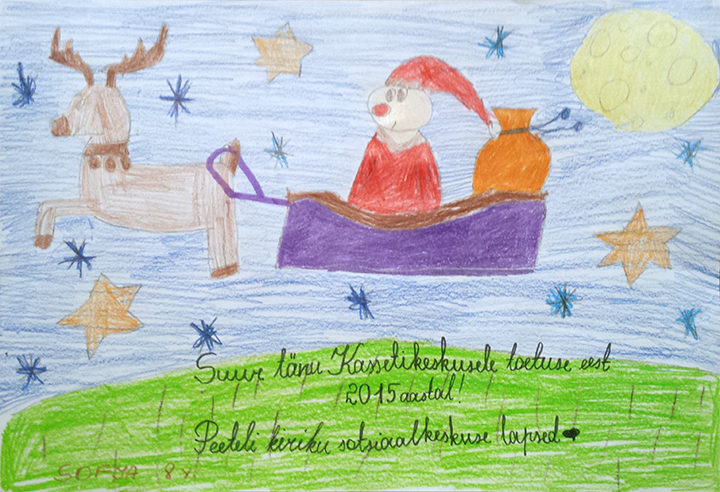 Suur tänu Kassettikeskusele toetuse eest
2015 aastal!
Peeteli kiriku sotsiaalkeskuse lapsed
SOFYA 8 y.